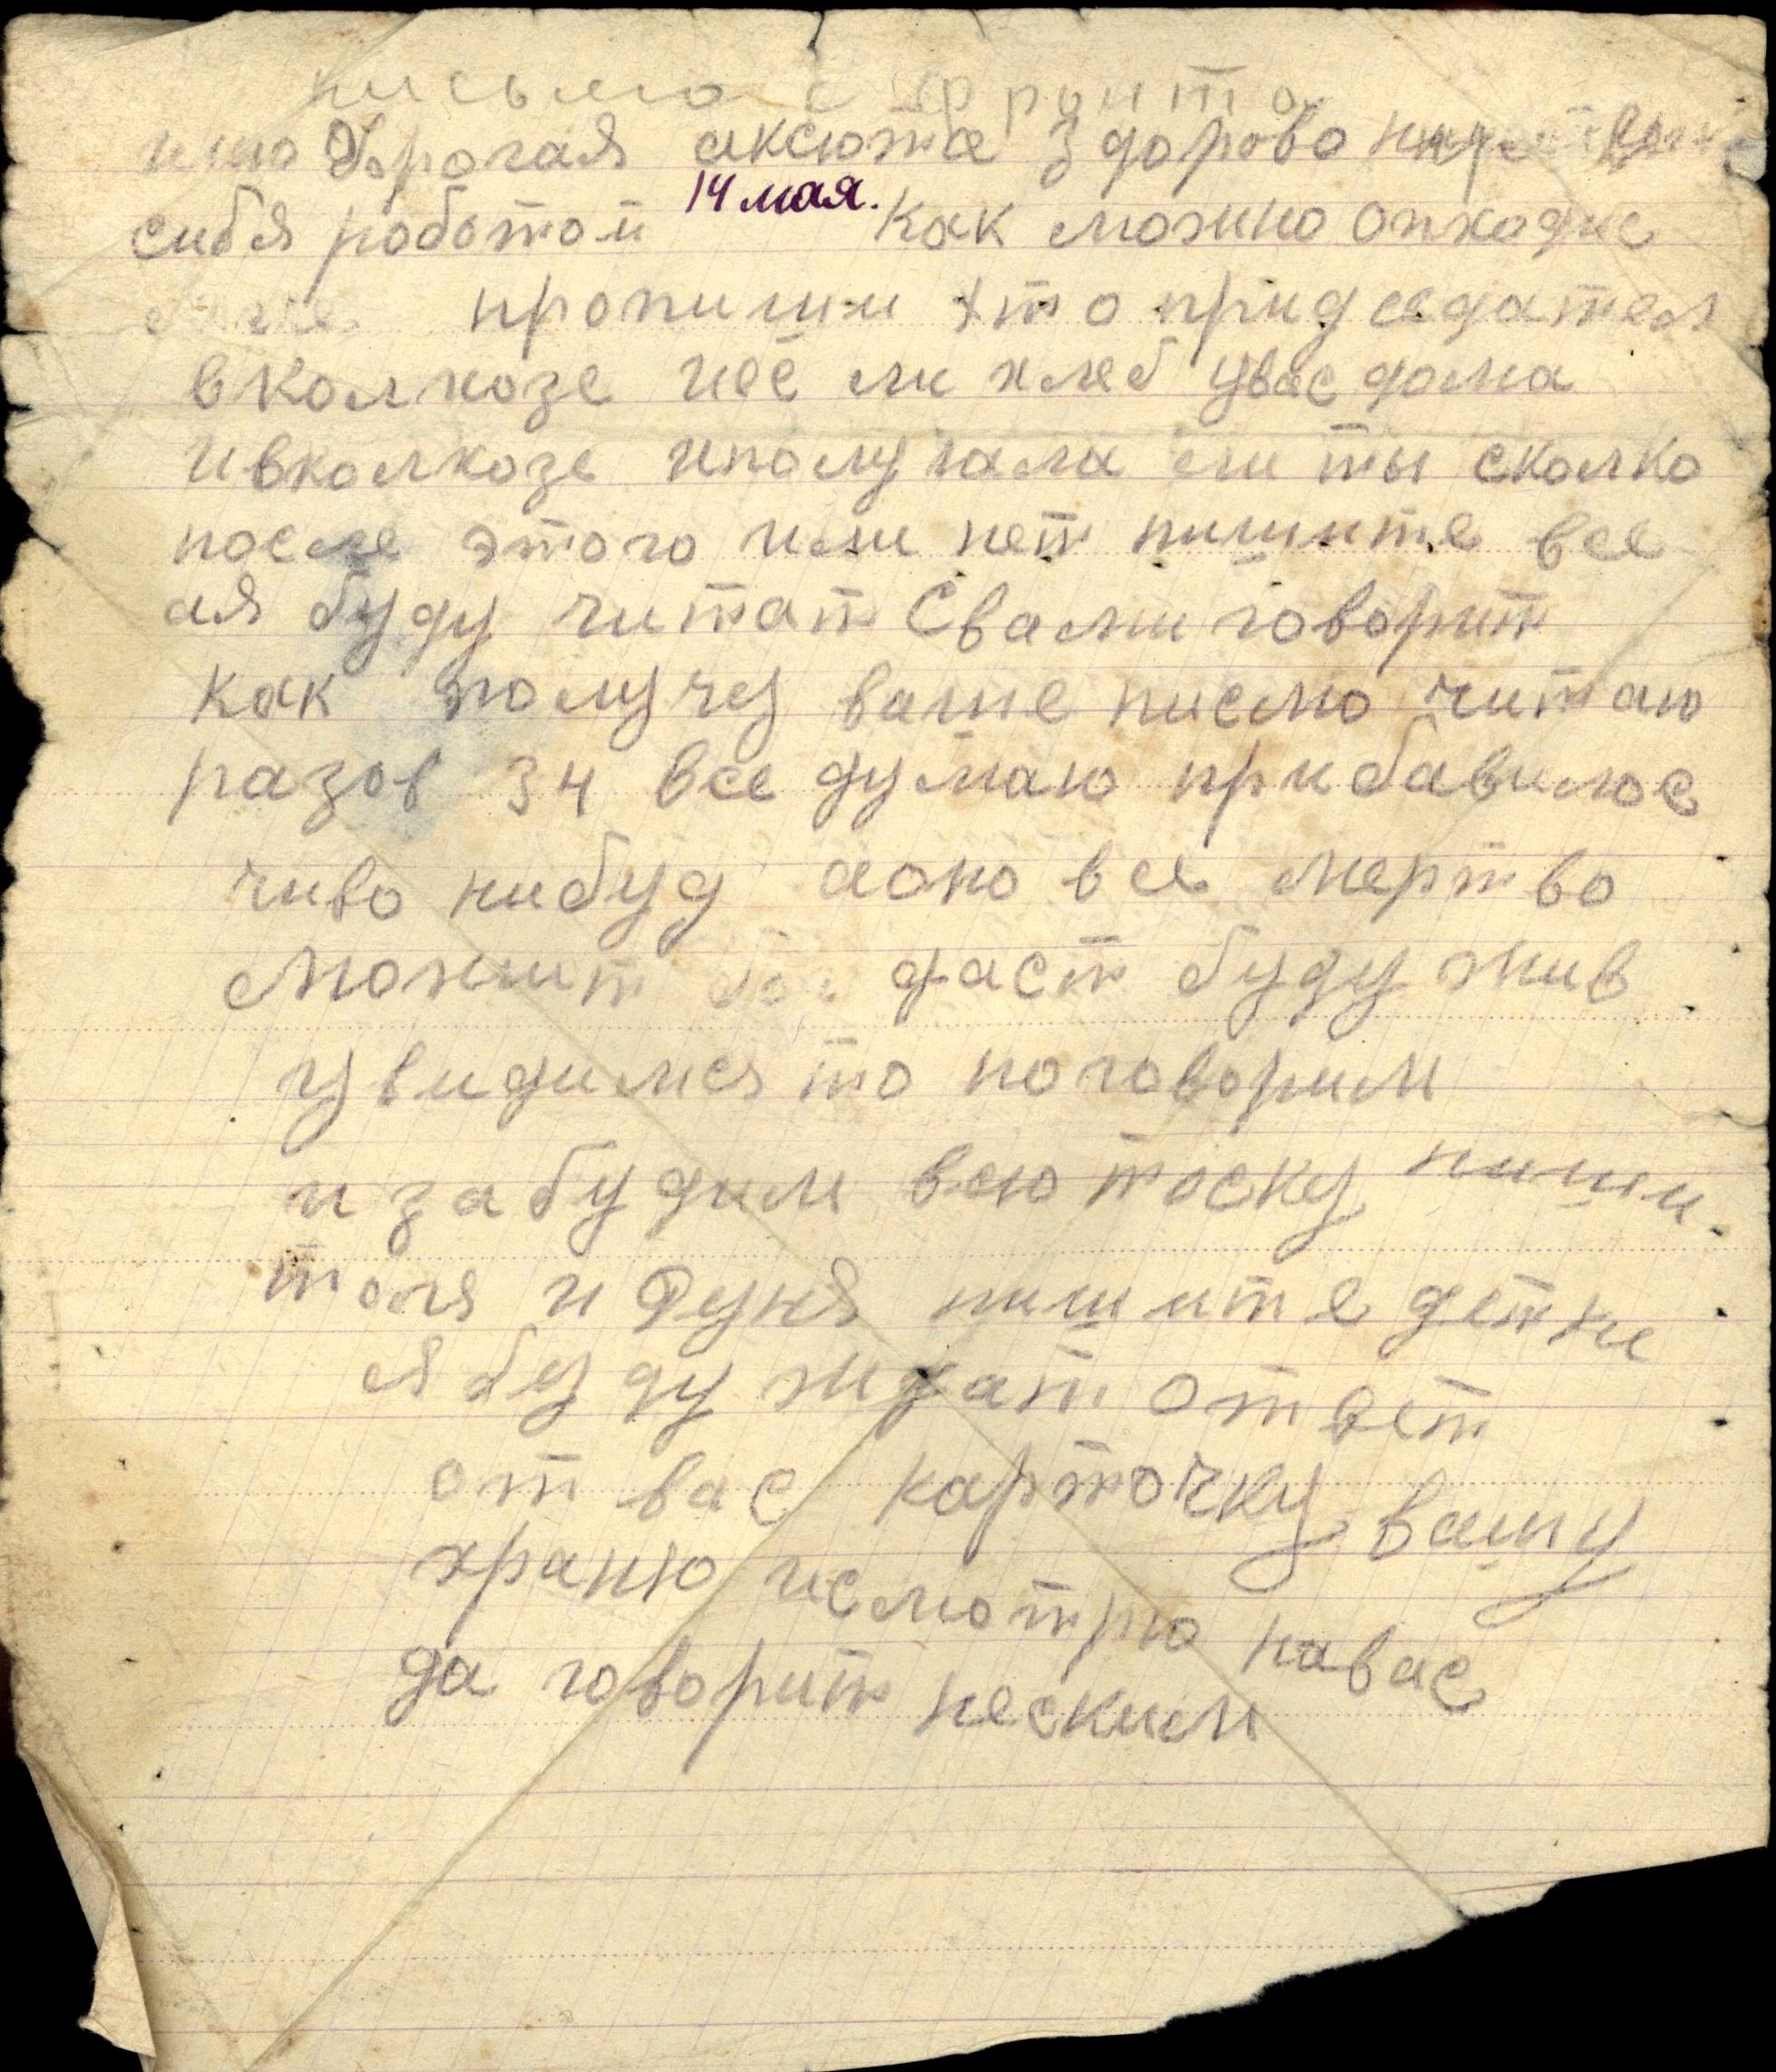 письмо с фронта
ишо дорогая аксюта здорово
14 мая.
сибя роботой как можно опходис
пропиши хто придседател
в Колхозе исё ли хлеб увас дома
ивколхозе иполучала ли ты сколко
после этого или нет пишите все
ая буду читат Свами говорит
как получу ваше писмо читаю
разов 34 все думаю прибавилос
чиво нибуд аоно все мертво
можит даст буду жив
увидимся то поговорим
и забудим всю тоску пиши-
толя и Дуня пишите детки
я буду ждат ответ
от вас карточку вашу
храню исмотрю навас
да говорит неским